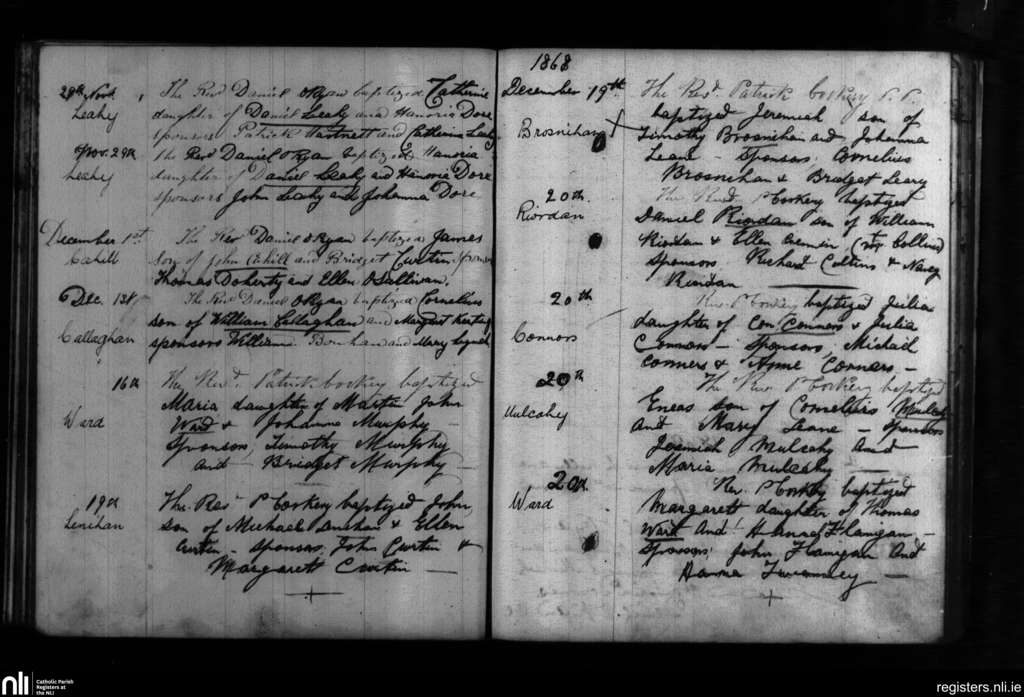 29th Novr. The Revd Daniel O Ryan baptized Catherine
Leahy daughter of Daniel Leahy and Hanoria Dore
sponsors Patrick Hartnett and Catherine Leahy
Nov. 29th the Revd Daniel O Ryan baptized Hanoria
Leahy daughter of Daniel Leahy and Hanoria Dore
sponsors John Leahy and Johanna Dore
December 1st The Rev Daniel O Ryan baptized James
Cahill son of John Cahill and Bridget Curtin sponsors
Thomas Doherty and Ellen O Sullivan
Dec. 13th The Revd Daniel O Ryan baptized Cornelius
son of William Callaghan and Margaret Keating
Callaghan sponsors William and Mary Lynch
16th The Revd. Patrick Corkery baptized
Maria daughter of Martin John
Ward Ward & Johanna Murphy –
Sponsors, Timothy Murphy
and – Bridget Murphy –
19th The Revd P Corkery baptized John,
Lenihan son of Michael Lenihan & Ellen
Curtin – sponsors, John Curtin &
Margarett Curtin –
1868
December 19th The Revd. Patrick Corkery P.P.
baptized Jeremiah son of
Brosnihan X Timothy Brosnihan and Johanna
Leane – Sponsors, Cornelius
Brosnihan & Bridget Leary
20th. The Revd P Corkery baptized
Riordan Daniel Riordan son of William
Riordan & Ellen Cremin
Sponsors Richard Collins & Nancy
Riordan
20th Rev. P Corkery baptized Julia
daughter of Con Connors & Julia
Connors Connors – Sponsors, Michael
Connors & Anne Connors –
20th The Rev P Corkery baptized
Mulcahy Eneas son of Cornelius Mulcahy
and Mary Leane – Sponsors
Jeremiah Mulcahy and
Maria Mulcahy
20th Rev. P Corkery baptized
Ward Margarett daughter of Thomas
Ward and Hanna Flanigan –
Sponsors, John Flanigan and
Hanna Twomey –
nli Catholic Parish
Registers at
the NLI
registers.nli.ie